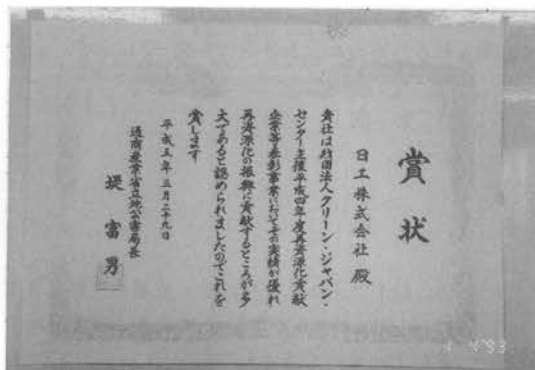 賞状
日工株式会社 殿
貴社は財団法人クリーン・ジャパン・
センター主催平成四年度再資源化貢献
企業等表彰事業においてその実績が優れ
再資源化の振興に貢献するところが多
大であると認められましたのでこれを
賞します
平成五年三月二十九日
通商産業省立地公害局長
堤富男